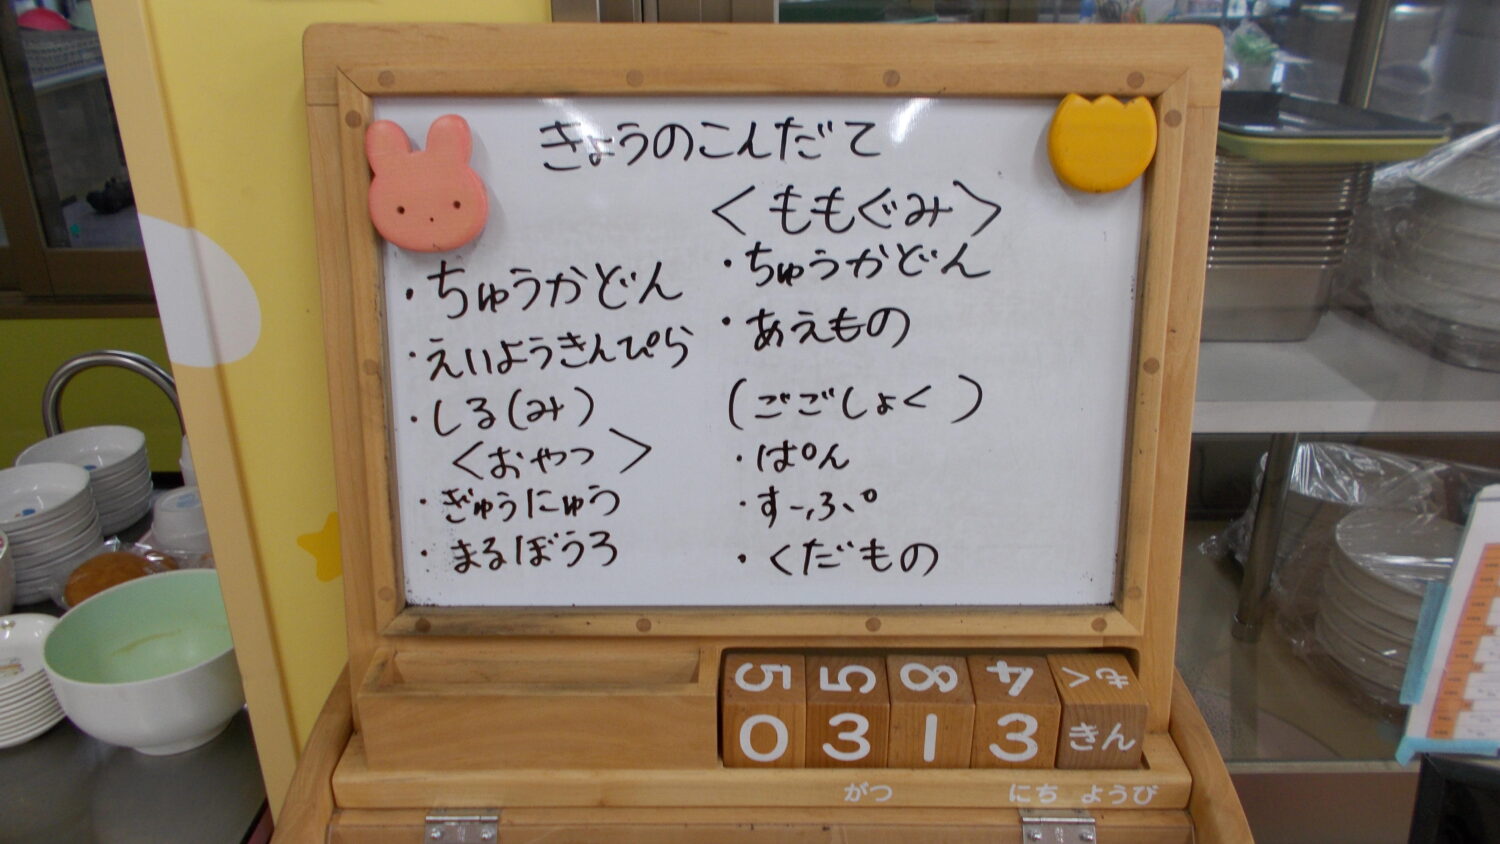 きょうのこんだて
・ちゅうかどん
・えいようきんぴら
・しる(み)
<おやつ>
・ぎゅうにゅう
・まるぼうろ
<ももぐみ>
・ちゅうかどん
・あえもの
(ごごしょく)
・ぱん
・すーぷ
・くだもの
5 5 8 4 もく
0 3 1 3 きん
がつ にち ようび